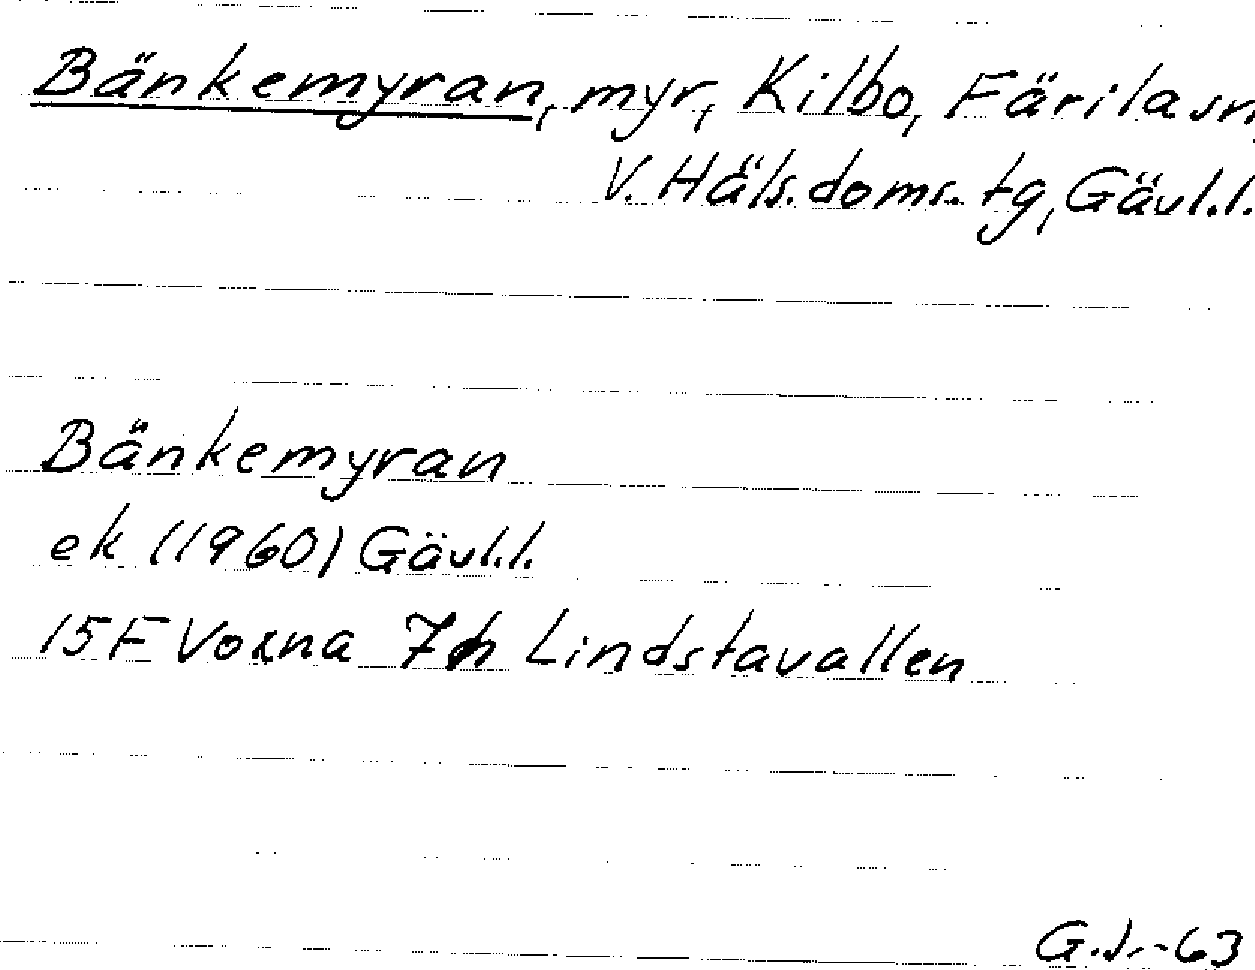 Bänkemyran, myr, Kilbo, Färila sn,
V. Häls. doms. tg, Gävl.l.
Bänkemyran
ek (1960) Gävl.l.
15F Voxna 7h Lindstavallen
-63